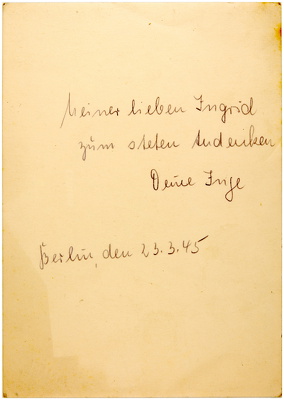 Meiner lieben Ingrid
zum steten Andenken
Deine Inge
Berlin, den 23.3.45